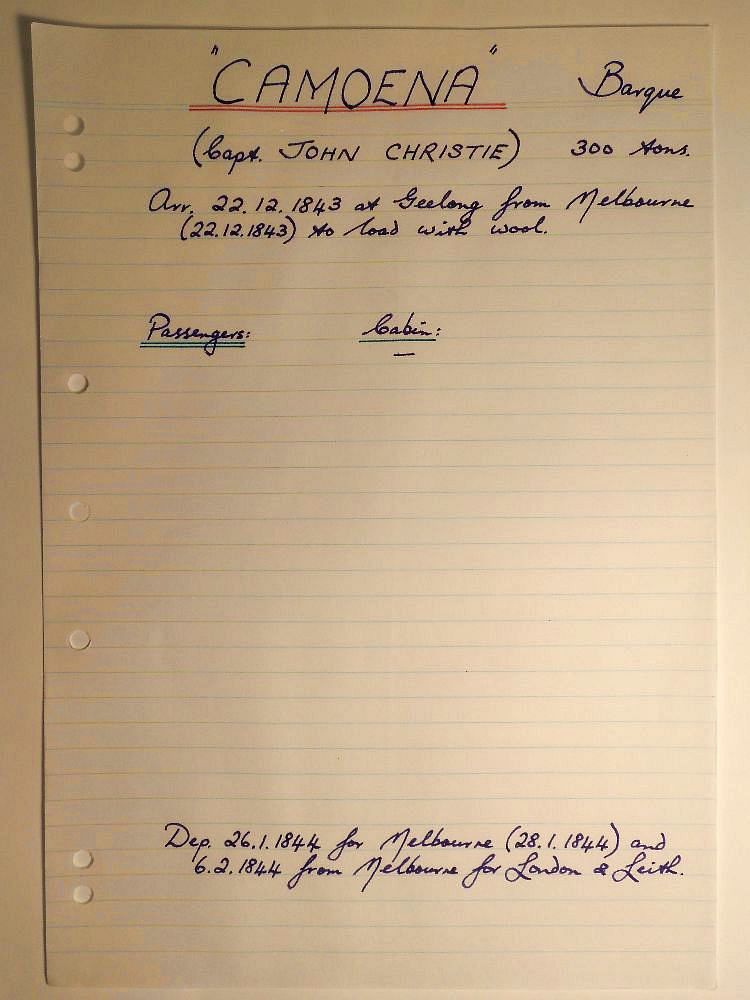 "CAMOENA" Barque
(Capt. JOHN CHRISTIE) 300 tons.
Arr. 22.12.1843 at Geelong from Melbourne
(22.12.1843) to load with wool.
Passengers: Cabin:
—
Dep. 26.1.1844 for Melbourne (28.1.1844) and
6.2.1844 from Melbourne for London & Leith.